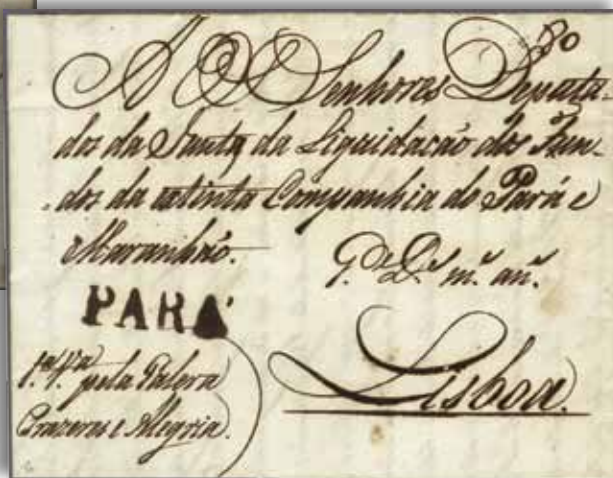 80
A OS Senhores Deputa-
dos da Junta da Liquidacaõ dos Fun-
dos da extinta Companhia do Pará e
Maranhaõ.
G.de D.s m.s an.s
PARÁ
1.a V.a pela Galera
Prazeres e Alegria.
Lisboa.